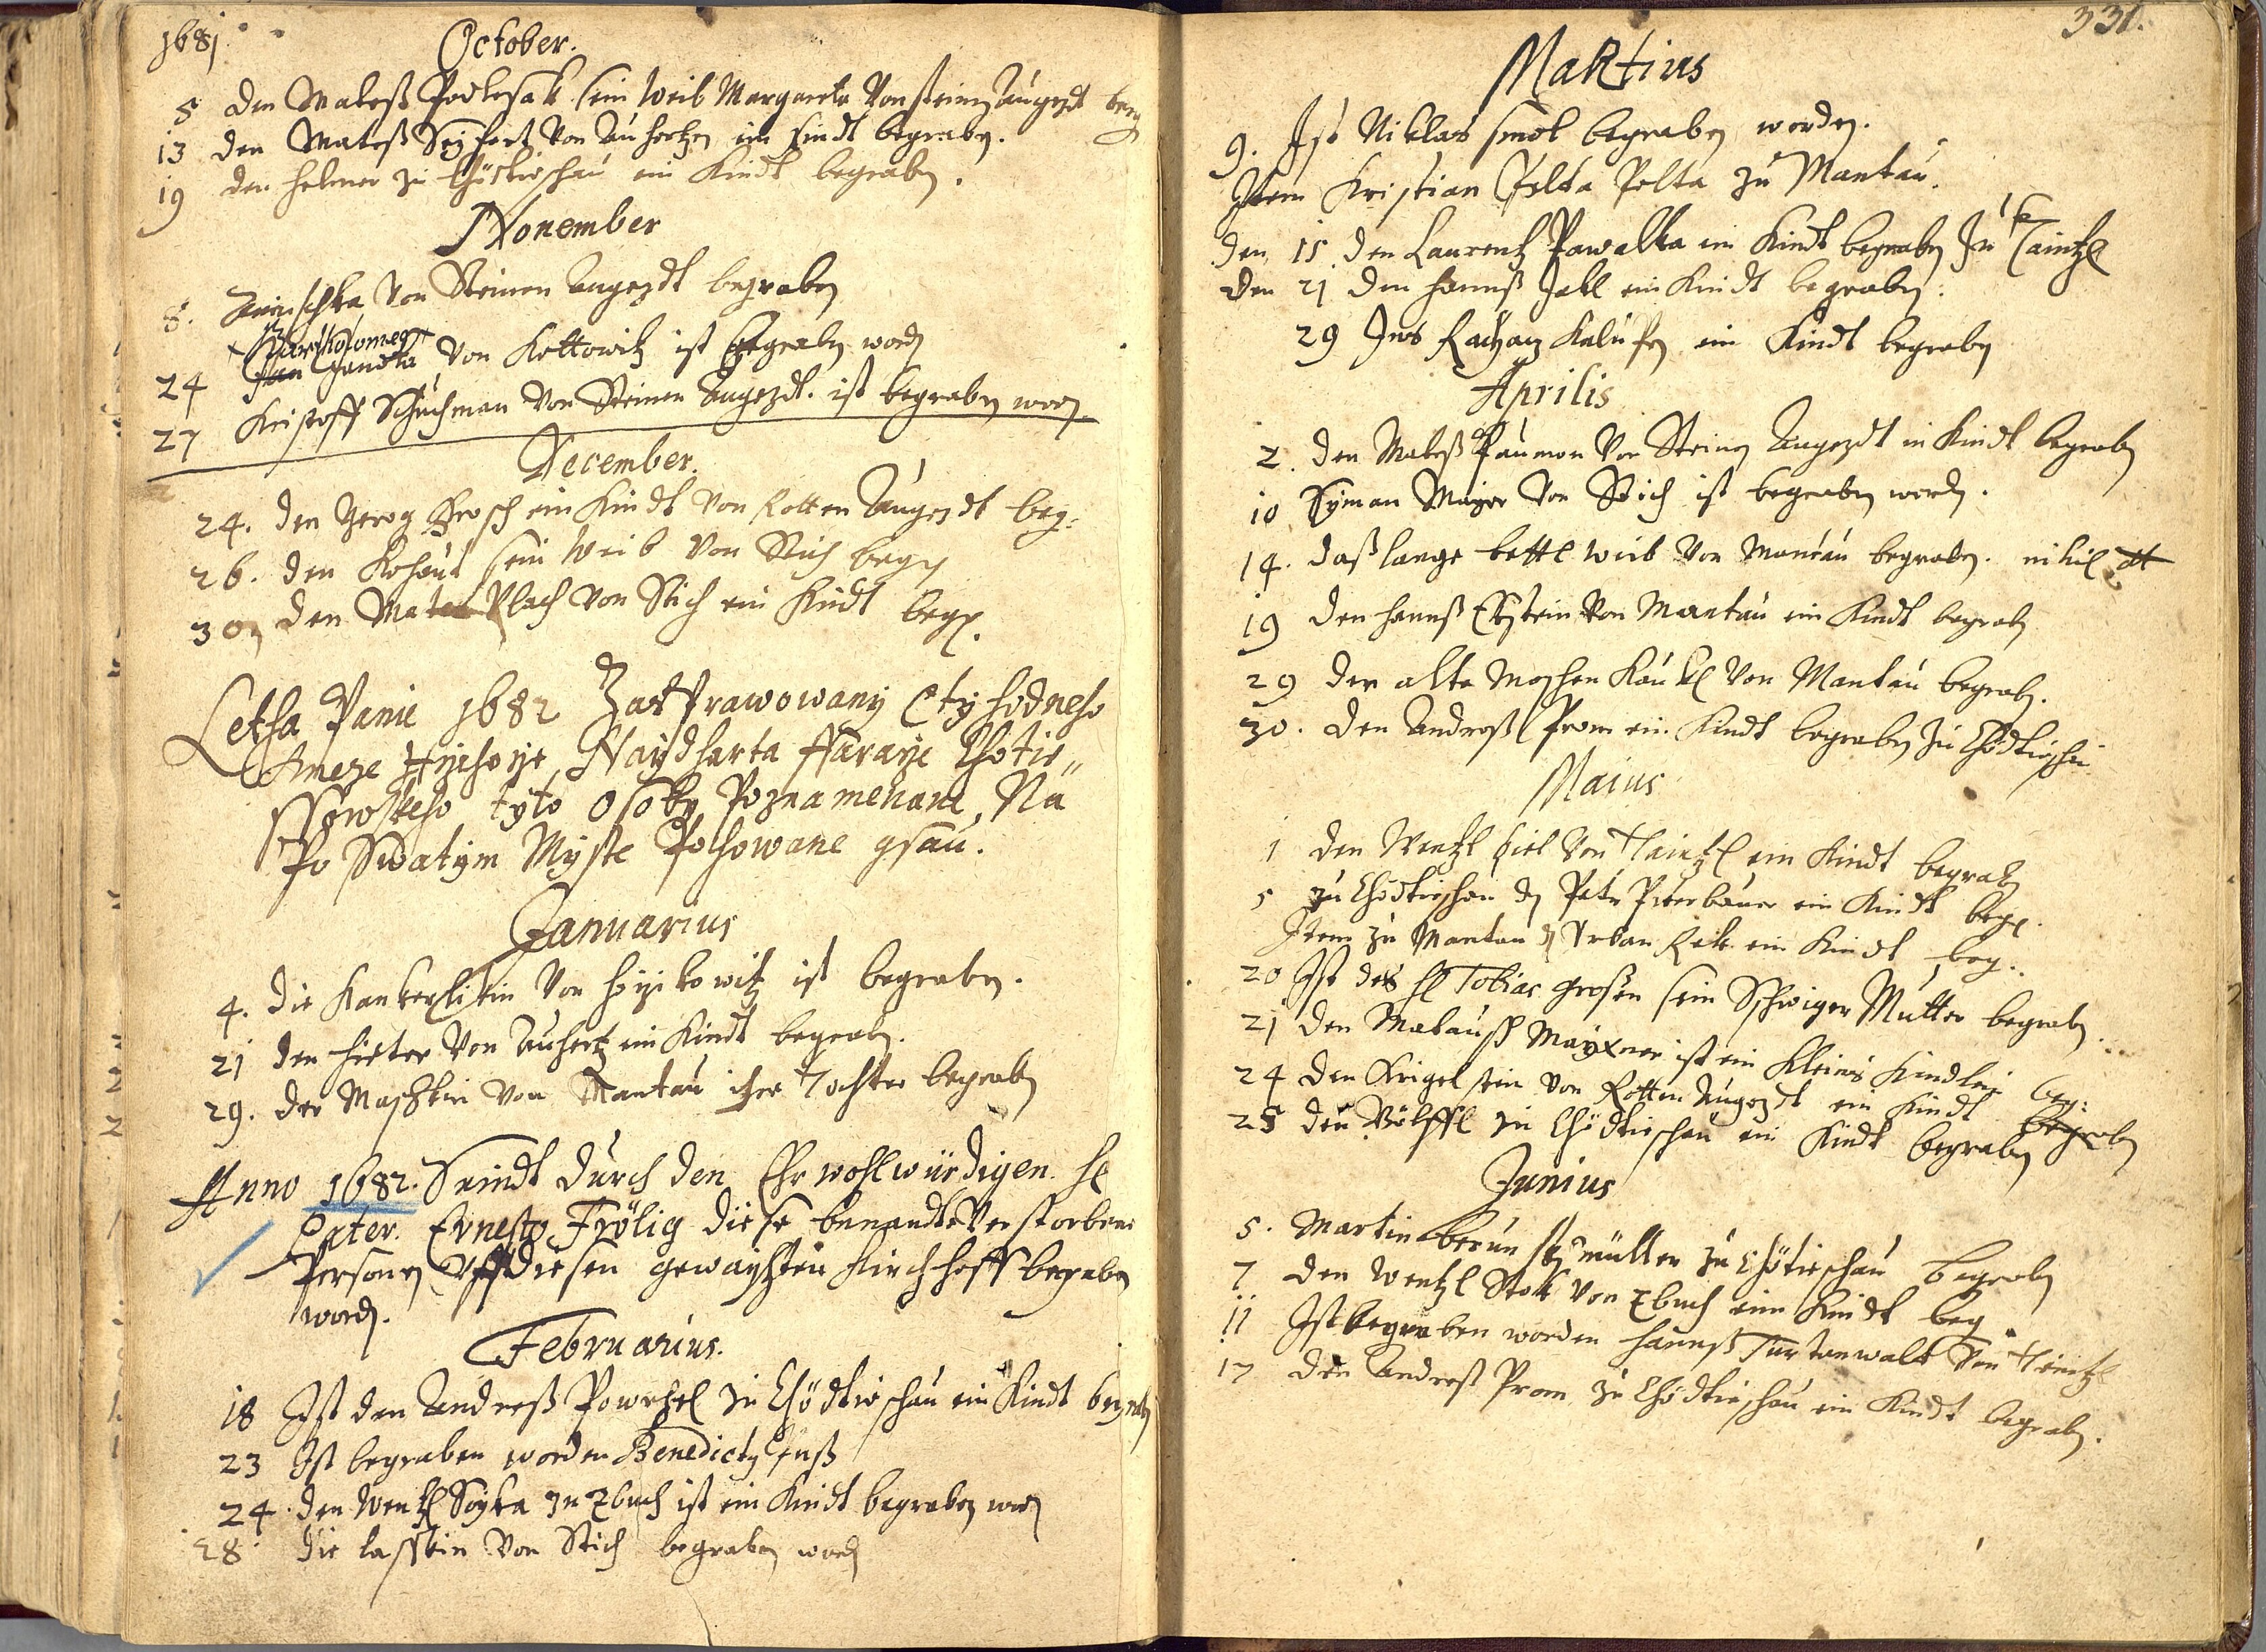 1681
October.
5 den Mateß Podlesak sein Weib Margareta Von steinen Augezdt begr
13 den Mateß Seyhart Von Auhertzen ein Kindt begraben.
19 den helmer zu Chötieschau ein Kindt begraben.
November
8. Von Steinen Augezdt begraben
Bartholomeg
24 Jan Janda Von Kottowitz ist begraben worden
27 Kristoff Schuhman Von Steinen Augezdt. ist begraben worden
December.
24. den Georg Frosch ein Kindt Von Rotten Augezdt beg:
26. den Kohaut sein Weib Von Stich begr
30 den Plach Von Stich ein Kindt begr.
Letha Panie 1682 Za Sprawowany Cty hodneho
Kneze Hrzehorze Naydharta Fararze Chotie„
ssowskeho tyto osoby Poznamenane, Na
Po Swatym Myste Pochowane gsau.
Januarius
4. die Von hozikowitz ist begraben.
21 den hieter Von Auhertz ein Kindt begraben.
29. der Maschkin Von Mantau ihre Tochter begraben
Anno 1682. Seindt durch den Ehrwohlwürdigen. H
Pater. Ernesto Frölig diese benandte Verstorbene
Personen Uff diesen geweychten Kirchhoff begraben
worden.
Februarius.
18 Ist den Andreß Powrzel zu Chödtieschau ein Kindt begraben
23 Ist begraben worden Benedicty
24. den Wentzl Soyka zu Zbuch ist ein Kindt begraben worden
28. die Von Stich begraben worden
331.
Martius
9. Ist Niklas Smol begraben worden.
Item Kristian Pelta zu Mantau.
den 15. den Laurentz Pawalka ein Kindt begraben zu Taintzl
den 21 den hannß Jakl ein Kindt begraben.
29 ein Kindt begraben
Aprilis
2. den Mateß Paumon Von Steinen Augezdt ein Kindt begraben
10 Syman Mayer Von Stich ist begraben worden.
14. daß lange bettl weib Von Mantau begraben. nihil dt
19 den hannß Ekstein Von Mantau ein Kindt begraben
29 der alte Kaukl Von Mantau begraben.
30. den Andreß Prom ein Kindt begraben zu Chödtieschau
Maius
1 den Wentzl Von Taintzl ein Kindt begraben
5 zu Chödtieschau den Peter Peterbauer ein Kindt begr.
Item zu Mantau den Urban ein Kindt beg:
20 Ist des H Tobias grosen sein Schwiger Mutter begraben
21 den Matausch Mayxner ist ein kleines Kindlein beg:
24 den Krigelstein Von Rotten Augezdt ein Kindt begraben
25 den Wölffl zu Chödtieschau ein Kindt begraben
Junius
5. Martin müller zu Chötieschau begraben
7 den Wentzl Stok Von Zbuch ein Kindt beg
11 Ist begraben worden hannß Von Teintzl
17 den Andreß Prom zu Chödtieschau ein Kindt begraben.